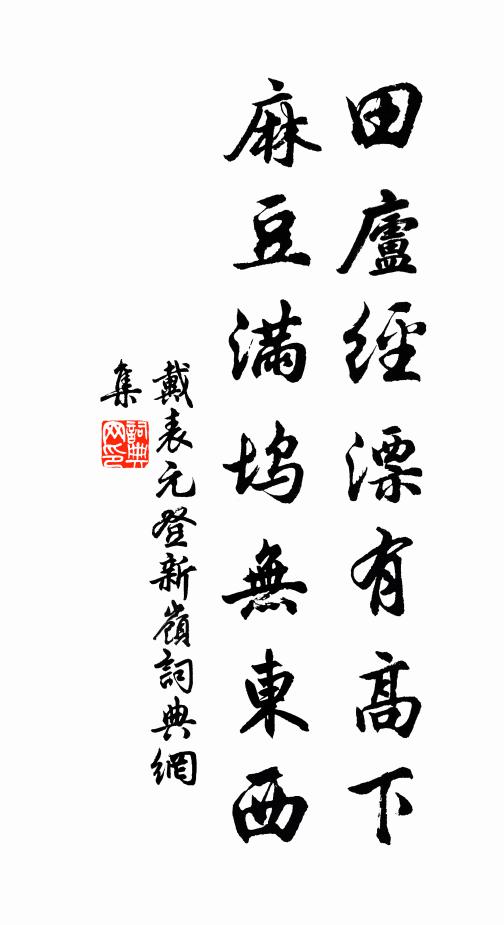 田廬經漂有高下
麻豆滿塢無東西
戴表元登新嶺詞典網
集
詞典
网印